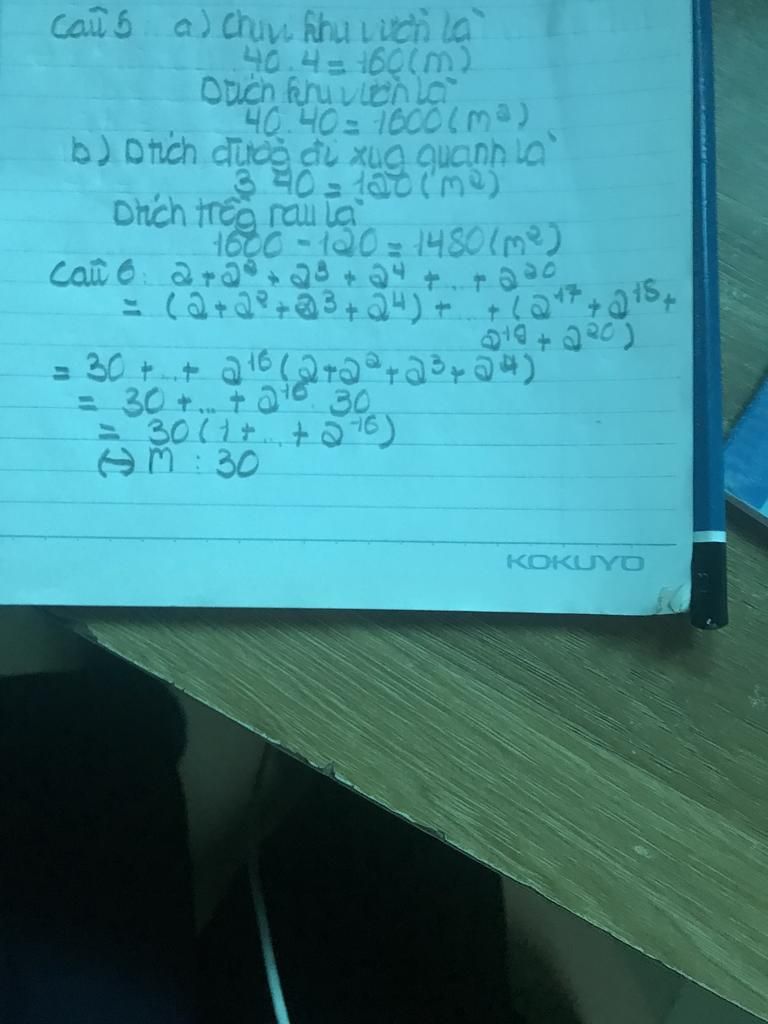 Câu 5 a) Chuvi khu vườn là
40.4 = 160(m)
Dtích khu vườn là
40.40 = 1600(m²)
b) Dtích đườg đi xug quanh là
3 40 = 120(m²)
Dtích trồg rau là
1600 - 120 = 1480(m²)
Câu 6: 2+2²+2³+2⁴+...+2²⁰
= (2+2²+2³+2⁴)+...+(2¹⁷+2¹⁸+
2¹⁹+2²⁰)
= 30+...+ 2¹⁶(2+2²+2³+2⁴)
= 30+...+2¹⁶ 30
= 30(1+...+2¹⁶)
↔ M : 30
KOKUYO